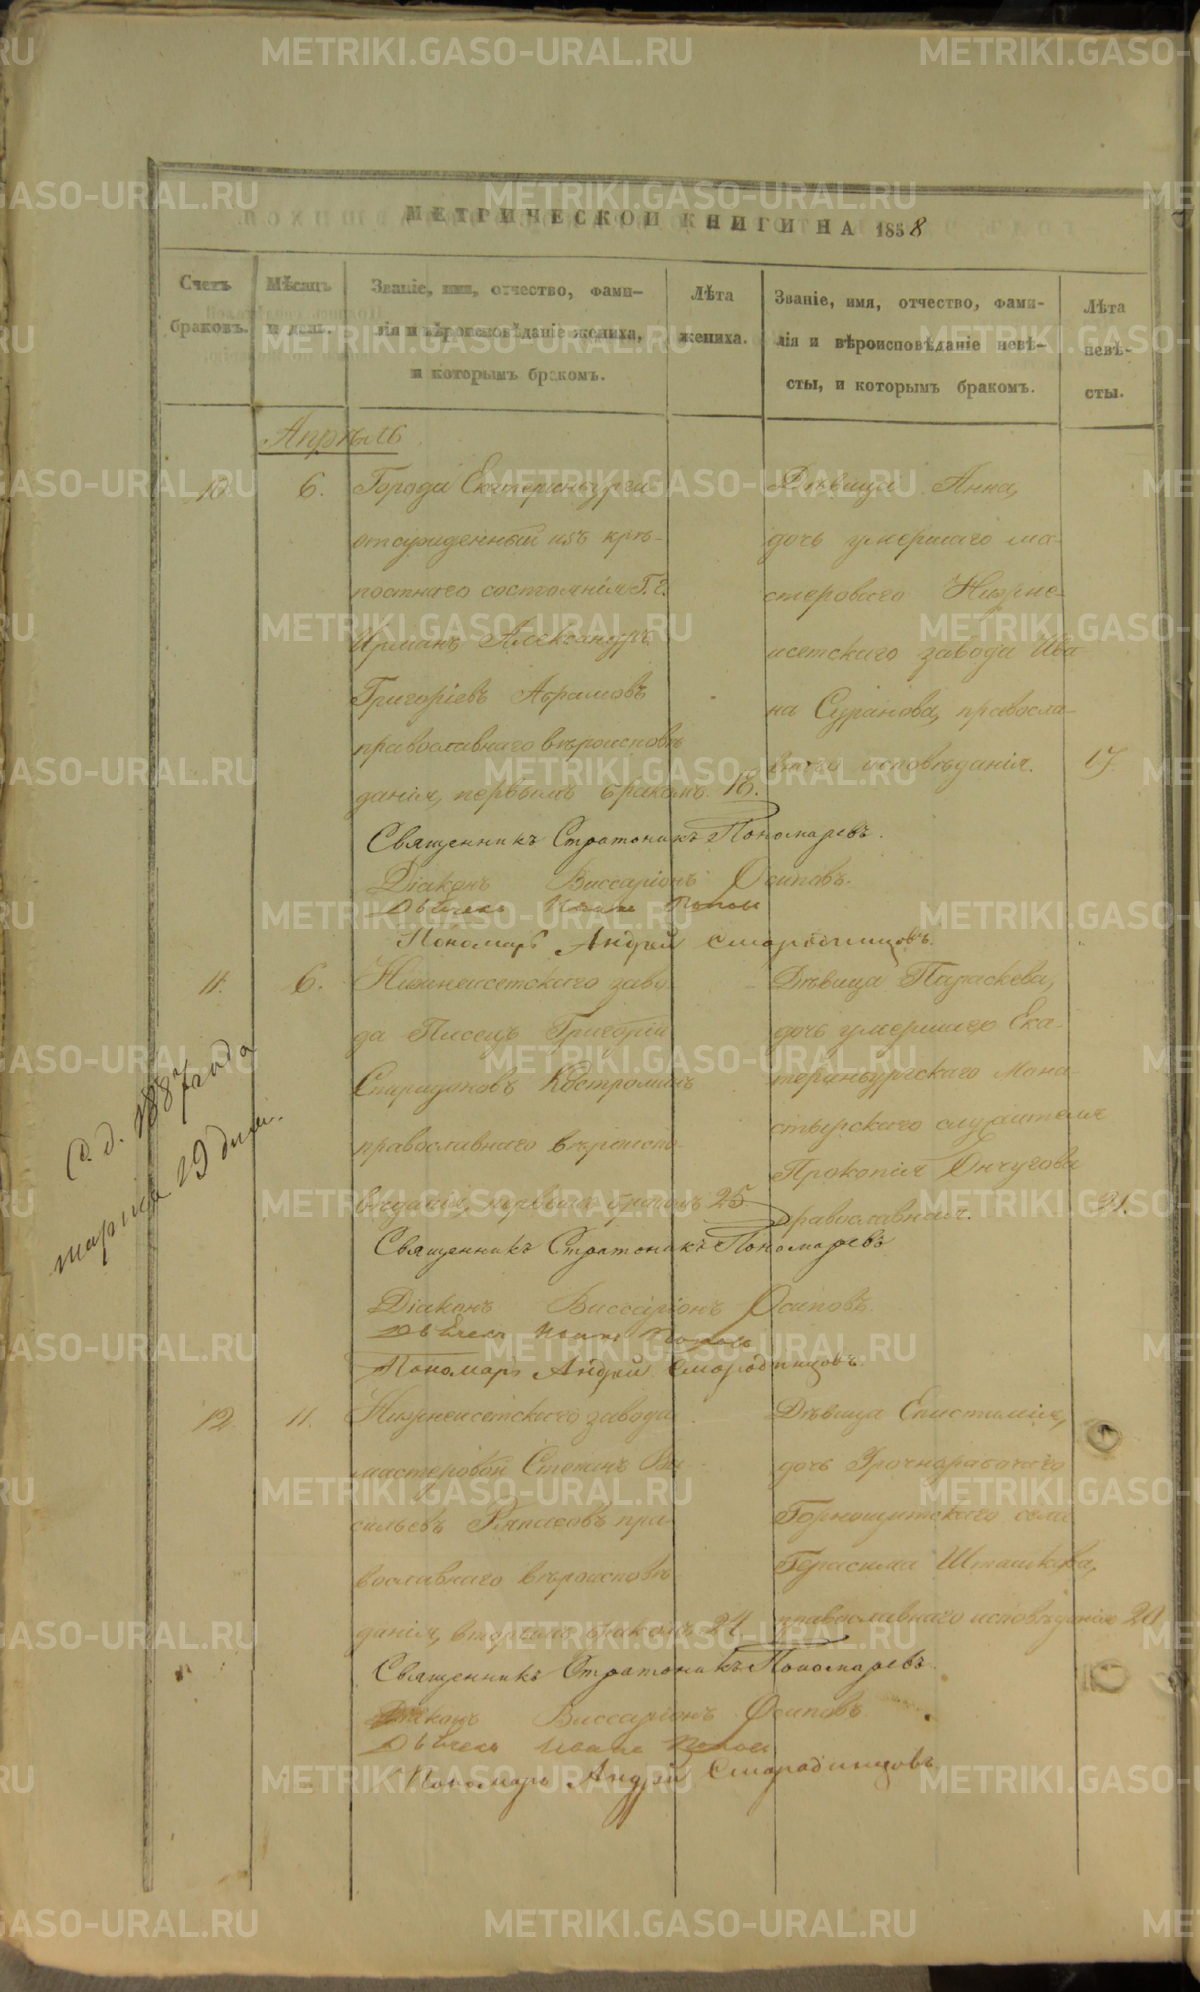 МЕТРИЧЕСКОЙ КНИГИ НА 1858
Счетъ
браковъ.
Мѣсяцъ
и день.
Званіе, имя, отчество, фами-
лія и вѣроисповѣданіе жениха,
и которымъ бракомъ.
Лѣта
жениха.
Званіе, имя, отчество, фами-
лія и вѣроисповѣданіе невѣ-
сты, и которымъ бракомъ.
Лѣта
невѣ-
сты.
Апрѣль
10. 6.
Города Екатеринбурга
отсужденный изъ крѣ-
постнаго состоянія Г. г.
Александръ
Григоріевъ Абрамовъ
православнаго вѣроисповѣ
данія, первымъ бракомъ. 18.
Дѣвица Анна,
дочь умершаго ма-
стероваго Нижне-
исетскаго завода Ива
на православ-
исповѣданія. 17.
Священникъ Стратоникъ Пономаревъ.
Діаконъ Виссаріонъ Осиповъ.
Дьячекъ Попов
Пономарь Андрей Смородинцовъ.
11. 6.
Нижнеисетскаго заво
да Писецъ Григорій
Спиридоновъ Костроминъ
православнаго вѣроиспо
вѣданія, первымъ бракомъ 25.
Дѣвица Параскева,
дочь умершаго Ека-
теринбургскаго Мона
стырскаго служителя
Прокопія Ончугова
православная. 21.
С. д. 1887 года
марта 29 дня.
Священникъ Стратоникъ Пономаревъ
Діаконъ Виссаріонъ Осиповъ.
Дьячекъ
Пономарь Андрей Смородинцовъ.
12. 11.
Нижнеисетскаго завода
мастеровой Степанъ Ва
сильевъ пра
вославнаго вѣроисповѣ
данія, вторымъ бракомъ 24
Дѣвица Епистимія,
дочь Урочнорабочаго
Горнощитскаго села
Герасима
православнаго исповѣданія 20
Священникъ Стратоникъ Пономаревъ.
Діаконъ Виссаріонъ Осиповъ.
Дьячекъ Попов
Пономарь Андрей Смородинцовъ
METRIKI.GASO-URAL.RU